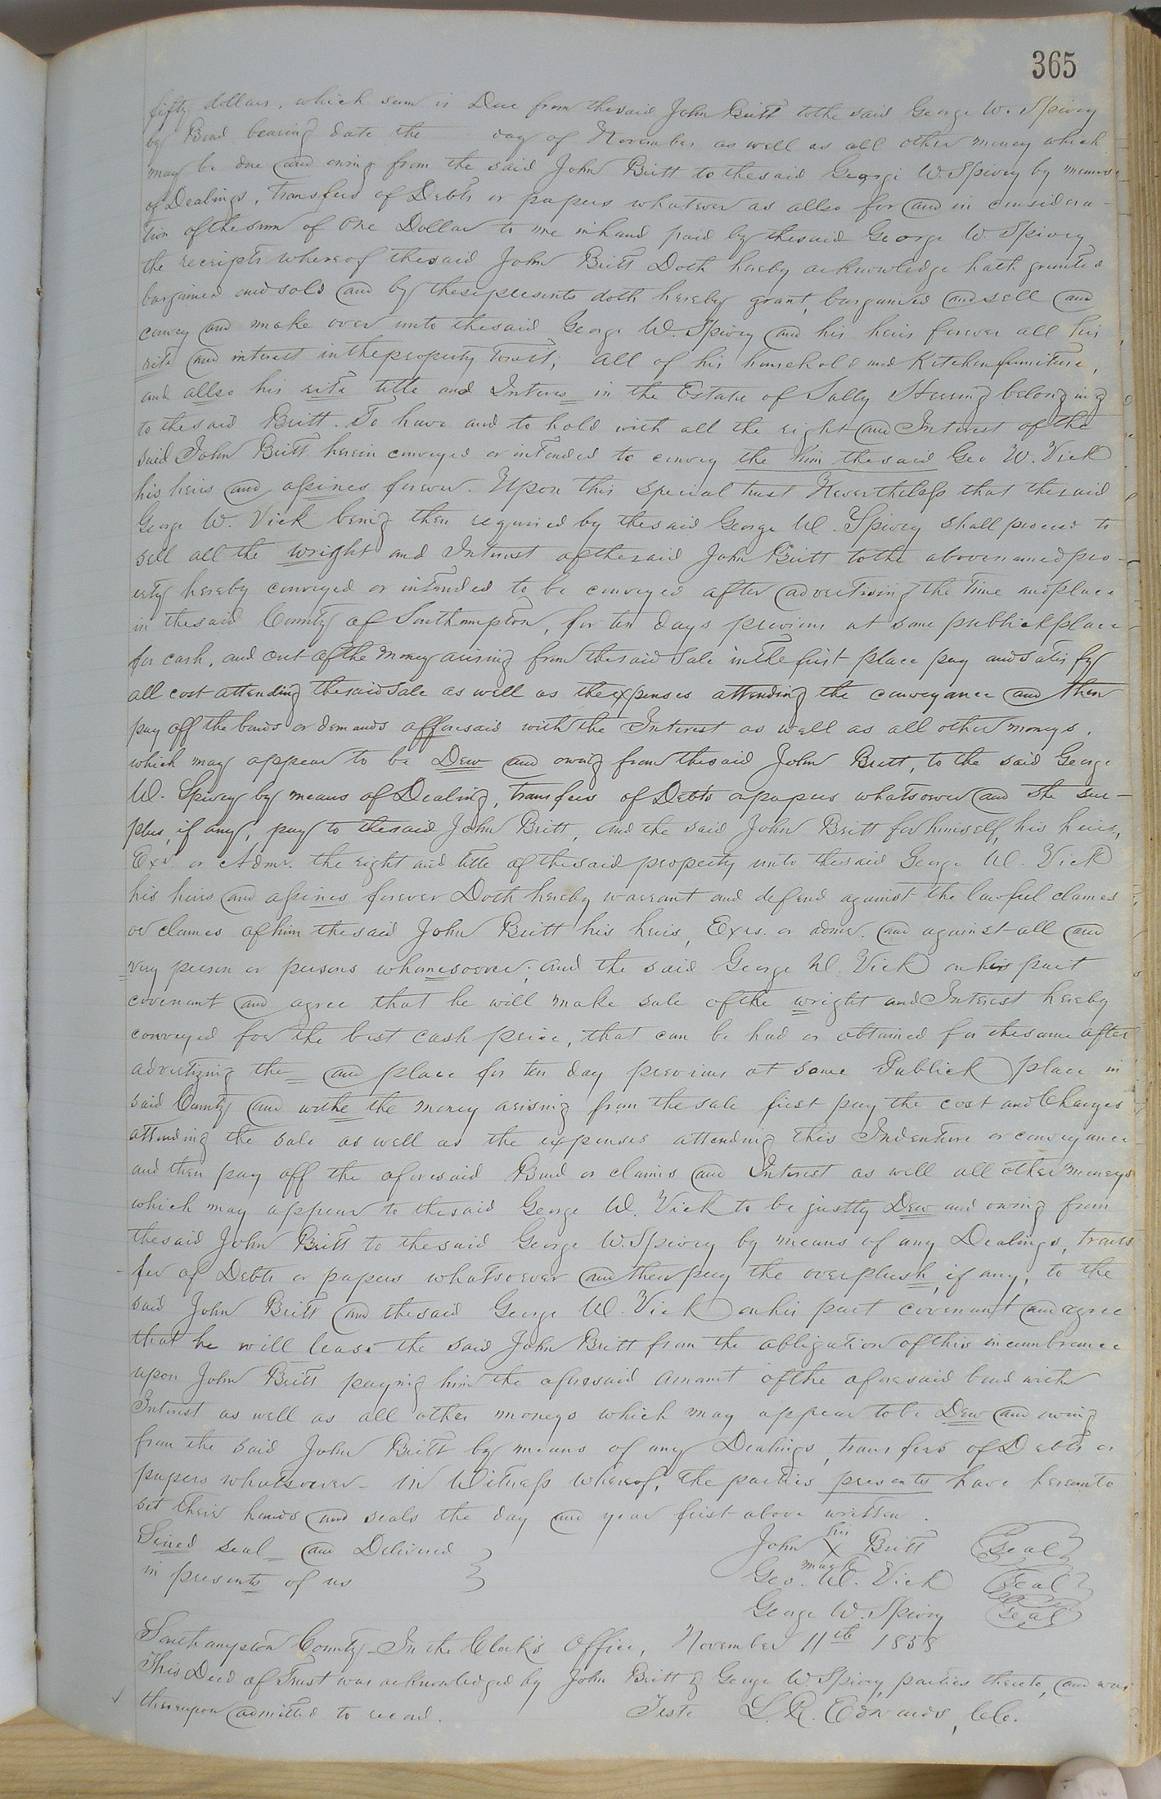 365
fifty dollars, which sum is Due from thesaid John Britt tothe said George W. Spivey
by Bond bearing date the day of November as well as all other money which
may be due and owing from the said John Britt to thesaid George W. Spivey by means
of Dealings, transfers of Debts or papers whatever as allso for and in considera-
tion ofthesum of One Dollar to me inhand paid by thesaid George W Spivey
the receipts whereof thesaid John Britt Doth hereby acknowledge hath granted
bargained and sold and by these presents doth hereby grant, bargained and sell and
convey and make over unto thesaid George W. Spivey and his heirs forever all his
rite and interest in theproperty towit; all of his household and Kitchen furniture,
and allso his rite title and Interes in the Estate of Sally Herring belonging
to thesaid Britt. To have and to hold with all the right and Interest of the
said John Britt herein conveyed or intended to convey the him thesaid Geo W. Vick
his heirs and assines forever. Upon this special trust Nevertheless that thesaid
George W. Vick being then required by thesaid George W. Spivey shall proceed to
sell all the wright and Interest ofthesaid John Britt tothe abovenamed pro-
erty hereby conveyed or intended to be conveyed after advertising the time and place
in thesaid County of Southampton, for ten days previous at some publick place
for cash, and out ofthe money arising from thesaid Sale inthe first place pay and satisfy
all cost attending thesaid sale as well as the expenses attending the conveyance and then
pay off the bonds or demands afforesaid with the Interest as well as all other moneys.
which may appear to be Dew and owing from thesaid John Britt, to the said George
W. Spivey by means of Dealing, transfers of Debts or papers whatsoever and the sur-
plus, if any, pay to thesaid John Britt, and the said John Britt for himself, his heirs,
Exs. or Admr. the right and title of thesaid property unto thesaid George W. Vick
his heirs and assines forever Doth hereby warrant and defend against the lawful claimes
or claimes ofhim thesaid John Britt his heirs, Exrs. or admr. and against all and
very person or persons whomesoever; and the said George W. Vick on his part
covenant and agree that he will make sale ofthe wright and Interest hereby
conveyed for the best cash price, that can be had or obtained for thesame after
advertizing the and place for ten day previous at some Publick place in
said County and withe the money arising from the sale first pay the cost and Charges
attending the sale as well as the expenses attending this Indenture or conveyance
and then pay off the aforesaid Bond or claims and Interest as well all other moneys
which may appear to thesaid George W. Vick to be justly Dew and owing from
thesaid John Britt to thesaid George W. Spivey by means of any Dealings, trans
fer of Debts or papers whatsoever and then pay the overplush, if any, to the
said John Britt and thesaid George W. Vick on his part covenant and agree
that he will lease the said John Britt from the obligation ofthis incumbrance
upon John Britt paying him the aforesaid amount ofthe aforesaid bond with
Interest as well as all other moneys which may appear to be Dew and owing
from the said John Britt by means of any Dealings, transfers of Debts or
papers whatsoever - in Witness whereof, the parties presents have hereunto
set their hands and seals the day and year first above written.
Sined seal and Delivered
in presents of us
John his X mark Britt Seal
Geo. W. Vick Seal
George W. Spivey Seal
Southampton County. In the Clerk's Office, November 11th 1858
This Deed of Trust was acknowledged by John Britt & George W Spivey, parties thereto, and was
thereupon admitted to record.
Teste L. R. Edwards, Clc.